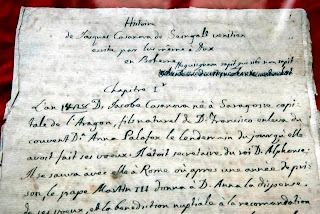 Histoire
de Jacques Casanova de Seingalt venitien
ecrite par lui même à Dux
en Boheme
Nequicquam sapit qui sibi non sapit
Chapitre I.r
L'an 1428 D. Jacobe Casanova né à Saragosse capi-
tale de l'Aragon, fils naturel de D. Francisco enleva du
couvent D. Anna Palafox le lendemain du jour qu'elle
avoit fait ses voeux. Il étoit secretaire du roi D. Alphonse.
Il se sauva avec elle à Rome où après une année de pri-
son, le pape Martin III donna à D. Anna la dispense
de ses voeux, et la benediction nuptiale à la recomandation